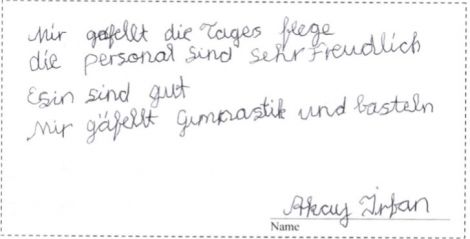 Mir gefellt die Tages flege
die personal sind sehr Freudlich
Esin sind gut
Mir gäfellt Gumnastik und basteln
Akay İrfan
Name